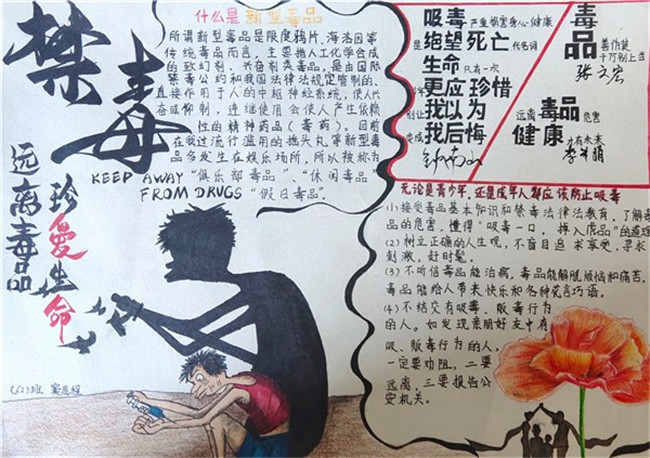 禁毒
远离毒品
珍爱生命
什么是新型毒品
所谓新型毒品是限度鸦片,海洛因等
传统毒品而言,主要指人工化学合成
的致幻剂、兴奋剂类毒品,是由国际
禁毒公约和我国法律法规定管制的、
直接作用于人的中枢神经系统,使人兴
奋或抑制,连续使用会使人产生依赖
性的精神药品(毒药)。目前
在我过流行滥用的摇头丸等新型毒
品多发生在娱乐场所,所以被称为
“俱乐部毒品”、“休闲毒品”
“假日毒品”。
KEEP AWAY
FROM DRUGS
吸毒严重损害身心健康
是绝望死亡代名词
生命只有一次
更应珍惜
别让我以为
变成我后悔
毒品
善伪装
千万别上当
远离毒品危害
健康才有未来
无论是青少年,还是成年人都应该防止吸毒
(1)接受毒品基本知识和禁毒法律法教育,了解毒
品的危害,懂得“吸毒一口,掉入虎品”的道理
(2)树立正确的人生观,不盲目追求享受,寻求
刺激,赶时髦。
(3)不听信毒品能治病,毒品能解脱烦恼和痛苦,
毒品能给人带来快乐和各种花言巧语。
(4)不结交有吸毒、贩毒行为
的人。如发现亲朋好友中有
吸、贩毒行为的人,
一定要劝阻,二要
远离,三要报告公
安机关。